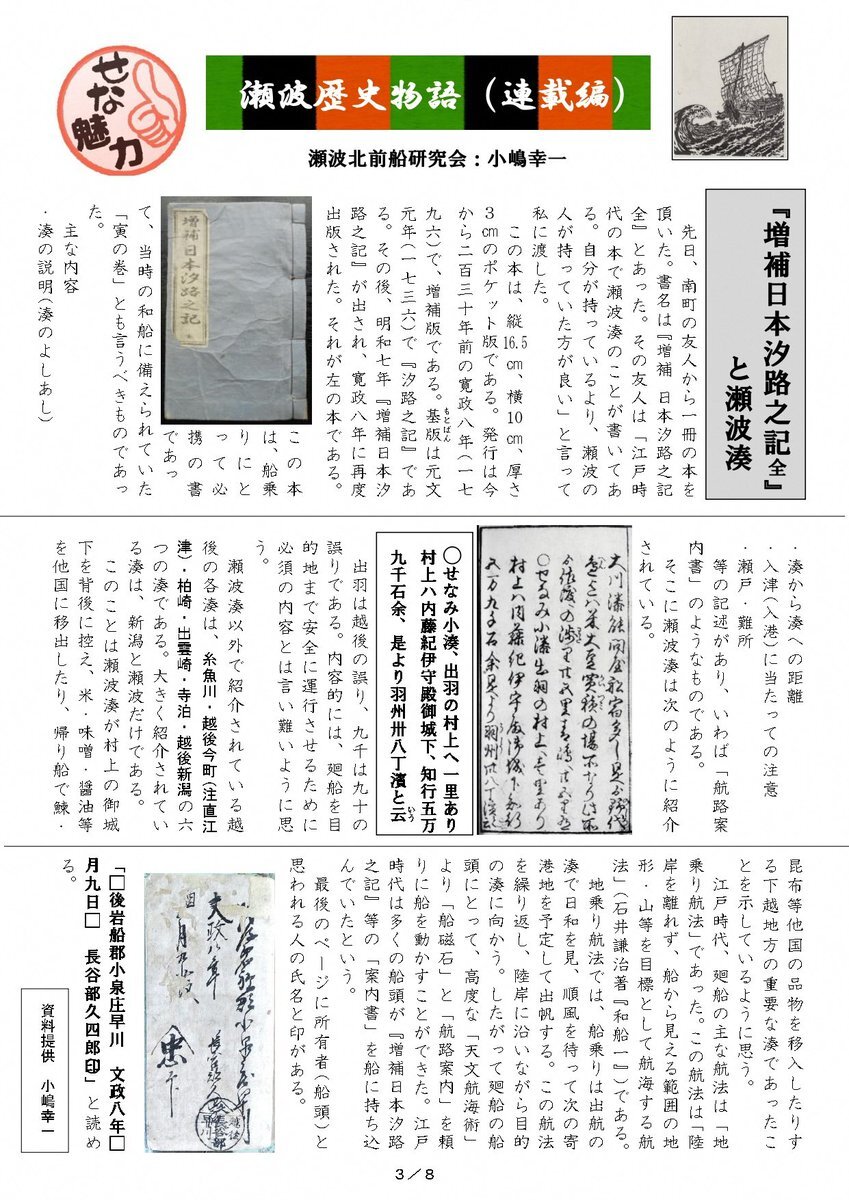 せな
魅力
瀬波歴史物語（連載編）
瀬波北前船研究会：小嶋幸一
『増補日本汐路之記全』
と瀬波湊
先日、南町の友人から一冊の本を
頂いた。書名は『増補 日本汐路之記
全』とあった。その友人は「江戸時
代の本で瀬波湊のことが書いてあ
る。自分が持っているより、瀬波の
人が持っていた方が良い」と言って
私に渡した。
この本は、縦16.5cm、横10cm、厚さ
3cmのポケット版である。発行は今
から二百三十年前の寛政八年（一七
九六）で、増補版である。基版は元文
もとばん
元年（一七三六）で『汐路之記』であ
る。その後、明和七年『増補日本汐
路之記』が出され、寛政八年に再度
出版された。それが左の本である。
増補日本汐路之記
この本
は、船乗
りにと
って必
携の書
であっ
て、当時の和船に備えられていた
「寅の巻」とも言うべきものであっ
た。
主な内容
・湊の説明（湊のよしあし）
・湊から湊への距離
・入津（入港）に当たっての注意
・瀬戸・難所
等の記述があり、いわば「航路案
内書」のようなものである。
そこに瀬波湊は次のように紹介
されている。
〇せなみ小湊、出羽の村上へ一里あり
村上ハ内藤紀伊守殿御城下、知行五万
九千石余、是より羽州卅八丁濱と云
いう
出羽は越後の誤り、九千は九十の
誤りである。内容的には、廻船を目
的地まで安全に運行させるために
必須の内容とは言い難いように思
う。
瀬波湊以外で紹介されている越
後の各湊は、糸魚川・越後今町（注直江
津）・柏崎・出雲崎・寺泊・越後新潟の六
つの湊である。大きく紹介されてい
る湊は、新潟と瀬波だけである。
このことは瀬波湊が村上の御城
下を背後に控え、米・味噌・醤油等
を他国に移出したり、帰り船で鰊・
昆布等他国の品物を移入したりす
る下越地方の重要な湊であったこ
とを示しているように思う。
江戸時代、廻船の主な航法は「地
乗り航法」であった。この航法は「陸
岸を離れず、船から見える範囲の地
形・山等を目標として航海する航
法」（石井謙治著『和船一』）である。
地乗り航法では、船乗りは出航の
湊で日和を見、順風を待って次の寄
港地を予定して出帆する。この航法
を繰り返し、陸岸に沿いながら目的
の湊に向かう。したがって廻船の船
頭にとって、高度な「天文航海術」
より「船磁石」と「航路案内」を頼
りに船を動かすことができた。江戸
時代は多くの船頭が『増補日本汐路
之記』等の「案内書」を船に持ち込
んでいたという。
最後のページに所有者（船頭）と
思われる人の氏名と印がある。
「□後岩船郡小泉庄早川 文政八年□
月九日□ 長谷部久四郎印」と読め
る。
資料提供 小嶋幸一
3／8